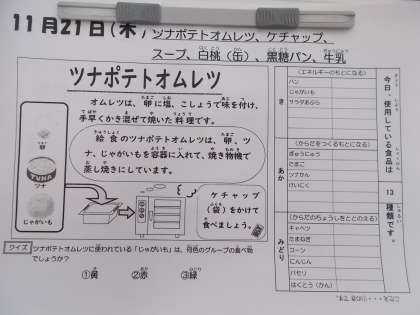 11月21日(木)ツナポテトオムレツ、ケチャップ、
スープ、白桃(缶)、黒糖パン、牛乳
ツナポテトオムレツ
オムレツは、卵に塩、こしょうで味を付け、
手早くかき混ぜて焼いた料理です。
給食のツナポテトオムレツは、卵、ツ
ナ、じゃがいもを容器に入れて、焼き物機で
蒸し焼きにしています。
卵
TUNA
ツナ
じゃがいも
ケチャップ
(袋)をかけて
食べましょう。
クイズ ツナポテトオムレツに使われている「じゃがいも」は、何色のグループの食べ物
でしょうか?
①黄 ②赤 ③緑
今日、使用している食品は
13
種類です。
き
(エネルギーのもとになる)
パン
じゃがいも
サラダあぶら
あか
(からだをつくるもとになる)
ぎゅうにゅう
たまご
ツナかん
みどり
(からだのちょうしをととのえる)
キャベツ
たまねぎ
コーン
にんじん
パセリ
はくとう(かん)